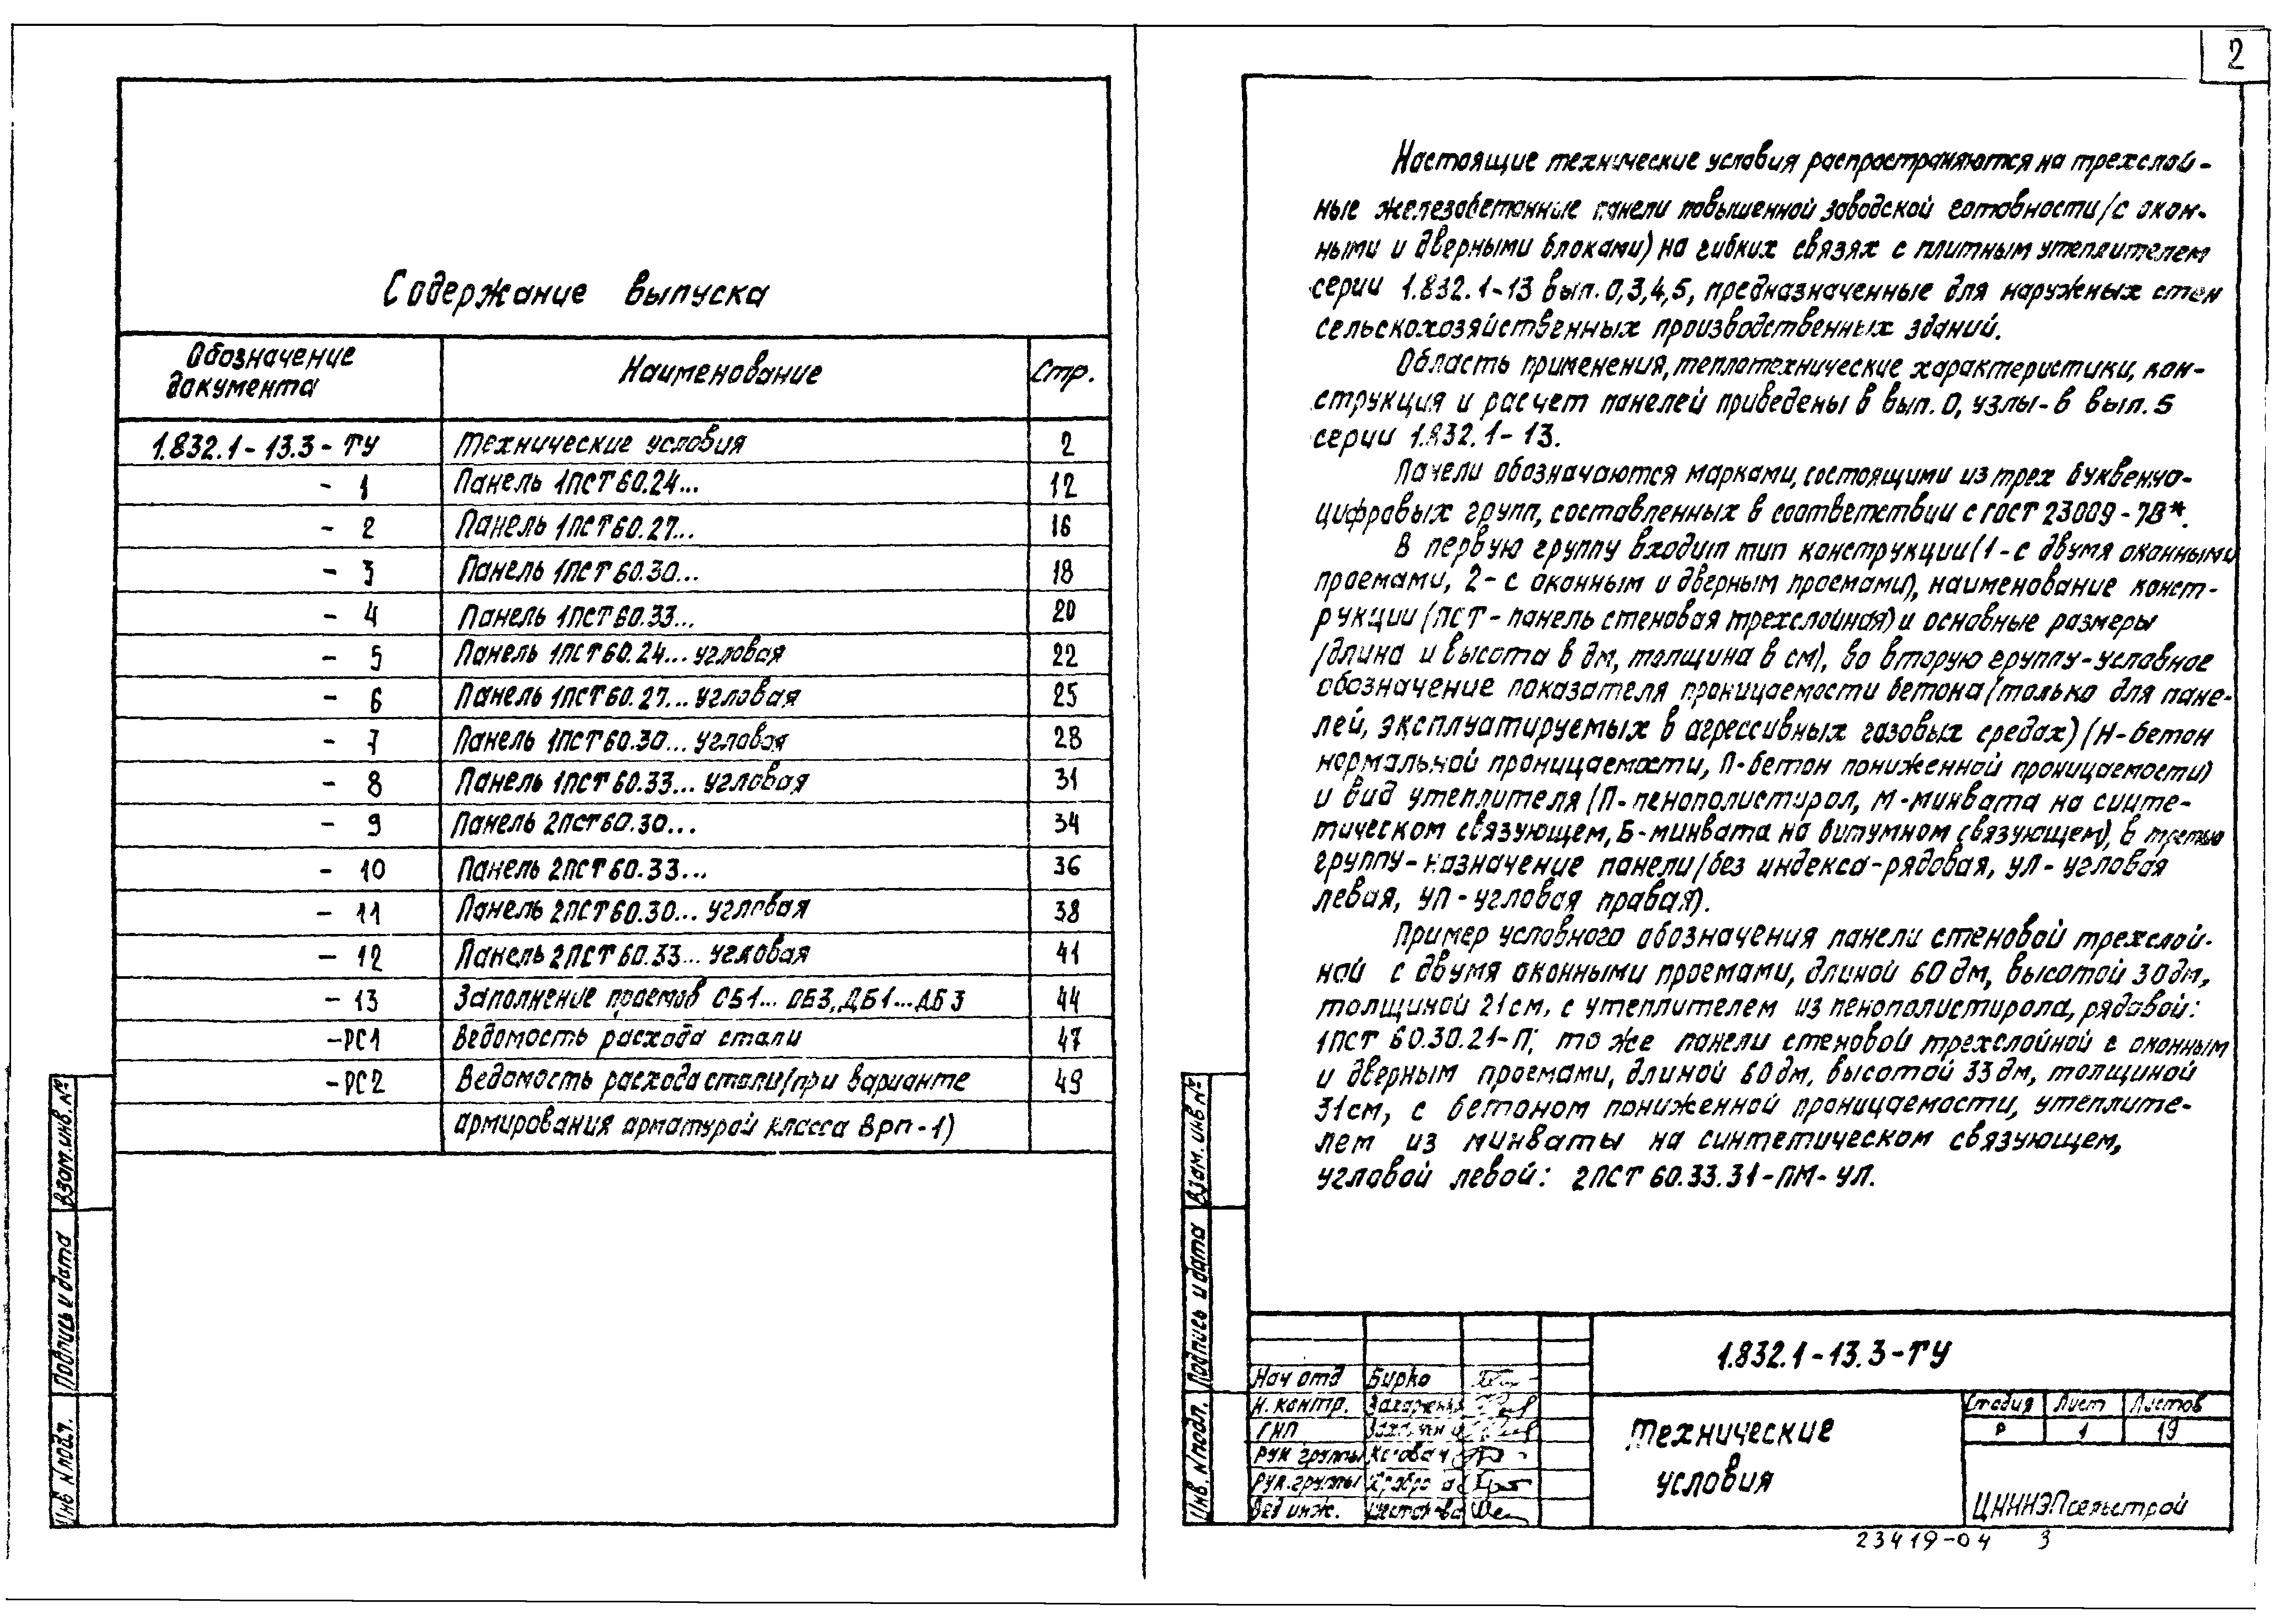 Содержание выпуска
Обозначение документа Наименование Стр.
1.832.1-13.3-ТУ Технические условия 2
- 1 Панель 1ПСТ60.24... 12
- 2 Панель 1ПСТ60.27... 16
- 3 Панель 1ПСТ60.30... 18
- 4 Панель 1ПСТ60.33... 20
- 5 Панель 1ПСТ60.24... угловая 22
- 6 Панель 1ПСТ60.27... угловая 25
- 7 Панель 1ПСТ60.30... угловая 28
- 8 Панель 1ПСТ60.33... угловая 31
- 9 Панель 2ПСТ60.30... 34
- 10 Панель 2ПСТ60.33... 36
- 11 Панель 2ПСТ60.30... угловая 38
- 12 Панель 2ПСТ60.33... угловая 41
- 13 Заполнение проемов ОБ1... ОБ3, ДБ1...ДБ3 44
-РС1 Ведомость расхода стали 47
-РС2 Ведомость расхода стали (при варианте 49
армирования арматурой класса Врп-1)
Инв. № подл. Подпись и дата Взам. инв. №
2
Настоящие технические условия распространяются на трехслой-
ные железобетонные панели повышенной заводской готовности (с окон-
ными и дверными блоками) на гибких связях с плитным утеплителем
серии 1.832.1-13 вып. 0,3,4,5, предназначенные для наружных стен
сельскохозяйственных производственных зданий.
Область применения, теплотехнические характеристики, кон-
струкция и расчет панелей приведены в вып. 0, узлы - в вып. 5
серии 1.832.1-13.
Панели обозначаются марками, состоящими из трех буквенно-
цифровых групп, составленных в соответствии с ГОСТ 23009-78*.
В первую группу входит тип конструкции (1-с двумя оконными
проемами, 2-с оконным и дверным проемами), наименование конст-
рукции (ПСТ - панель стеновая трехслойная) и основные размеры
(длина и высота в дм, толщина в см), во вторую группу - условное
обозначение показателя проницаемости бетона (только для пане-
лей, эксплуатируемых в агрессивных газовых средах) (Н-бетон
нормальной проницаемости, П-бетон пониженной проницаемости)
и вид утеплителя (П-пенополистирол, М-минвата на синте-
тическом связующем, Б-минвата на битумном связующем), в третью
группу - назначение панели (без индекса-рядовая, УЛ-угловая
левая, УП-угловая правая).
Пример условного обозначения панели стеновой трехслой-
ной с двумя оконными проемами, длиной 60 дм, высотой 30 дм,
толщиной 21 см, с утеплителем из пенополистирола, рядовой:
1ПСТ 60.30.21-П; то же панели стеновой трехслойной с оконным
и дверным проемами, длиной 60 дм, высотой 33 дм, толщиной
31 см, с бетоном пониженной проницаемости, утеплите-
лем из минваты на синтетическом связующем,
угловой левой: 2ПСТ 60.33.31-ПМ-УЛ.
Инв. № подл. Подпись и дата Взам. инв. №
1.832.1-13.3-ТУ
Нач отд Бирко
Н. контр.
ГИП
Рук группы
Рук. группы
Вед инж.
Технические
условия
Стадия Лист Листов
Р 1 19
ЦНИИЭПсельстрой
23419-04 3